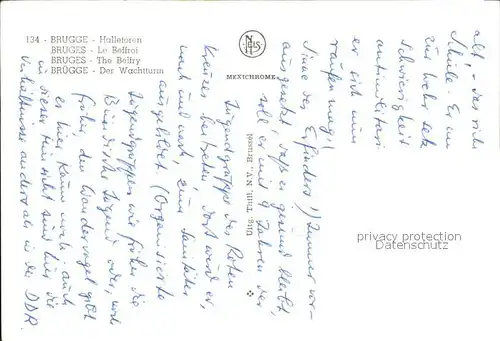 134 - BRUGGE - Halletoren
BRUGES - Le Beffroi
BRUGES - The Belfry
BRÜGGE - Der Wachtturm
NELS
MEXICHROME
Uitg. Thill, N.V. Brussel
alt, - das sich
Schule. Er
zur Wehr setzt
Schwierigkeit
antimilitari
er sich nun
raufen mag!
Sinne des Erfinders!) Immer vor-
ausgesetzt, daß es gesund bleibt,
soll er mit 9 Jahren der
Jugendgruppe des Roten
Kreuzes beitreten, dort wird er,
nach und nach, zum Sanitäter
ausgebildet (Organisierte
Jugendgruppen wie früher die
Bündische Jugend oder, noch
früher, den Wandervogel gibt
es hier kaum noch. Auch
in dieser Hinsicht sind hier die
Verhältnisse anders als in der DDR.
privacy protection
Datenschutz